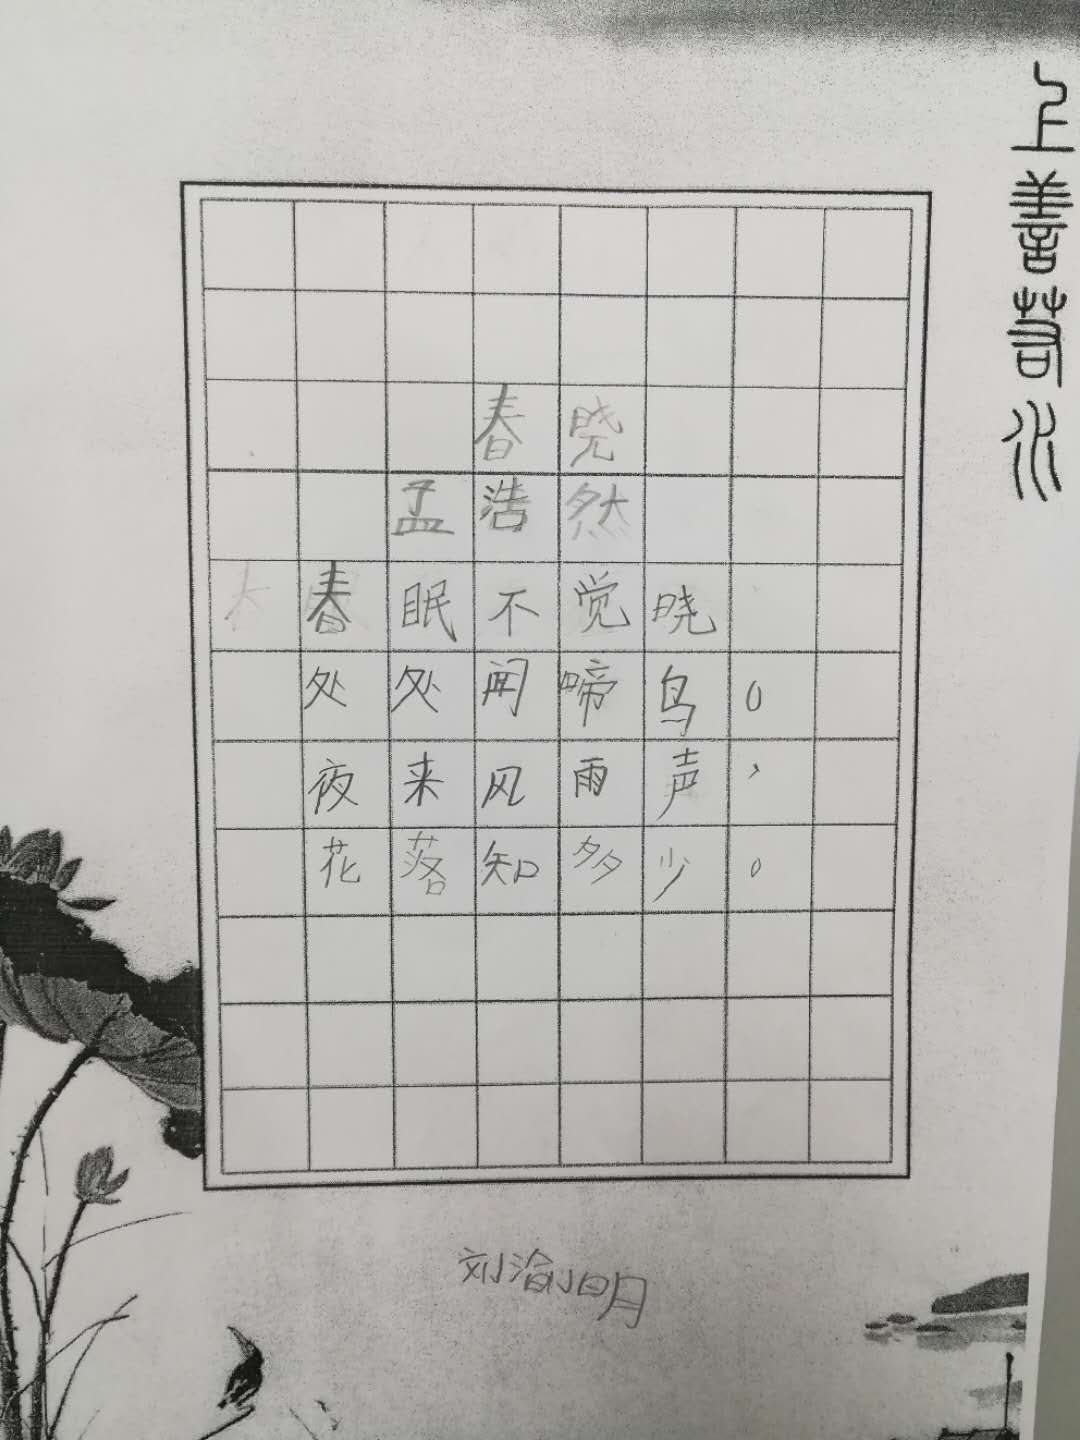 上善若水
春晓
孟浩然
春眠不觉晓
处处闻啼鸟。
夜来风雨声，
花落知多少。
刘渝明